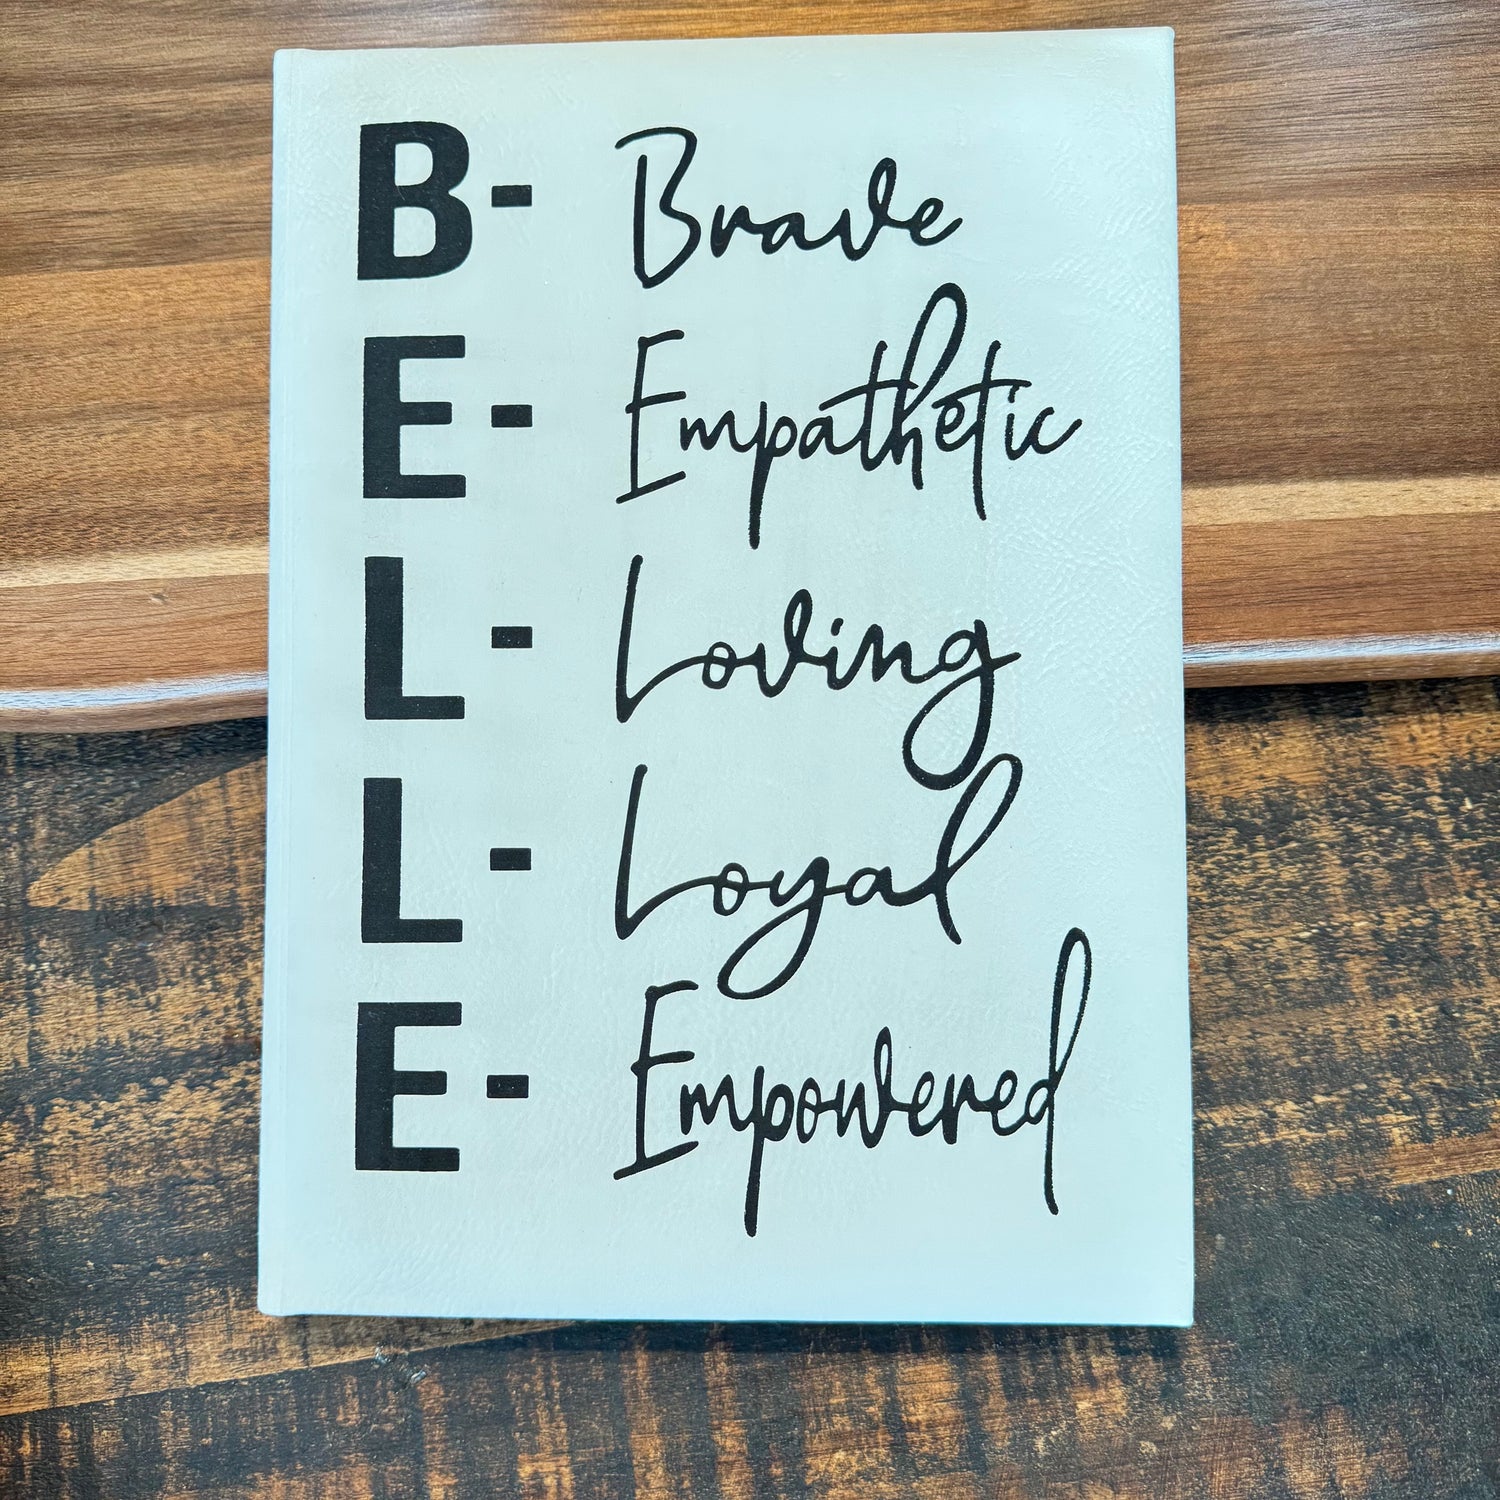 B- Brave
E- Empathetic
L- Loving
L- Loyal
E- Empowered